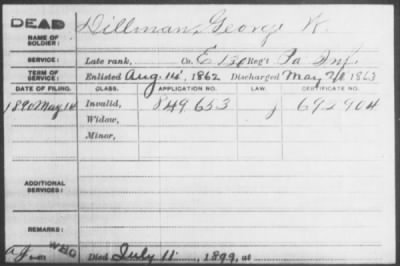 DEAD
NAME OF SOLDIER: Dillman, George K.
SERVICE: Late rank, Co. E Reg't Pa Inf.
TERM OF SERVICE: Enlisted Aug. 14, 1862 Discharged May 1863
DATE OF FILING. CLASS. APPLICATION NO. LAW. CERTIFICATE NO.
1890 May 14 Invalid, 849653 692904
Widow,
Minor,
ADDITIONAL SERVICES:
REMARKS:
Died July 11, 1899, at